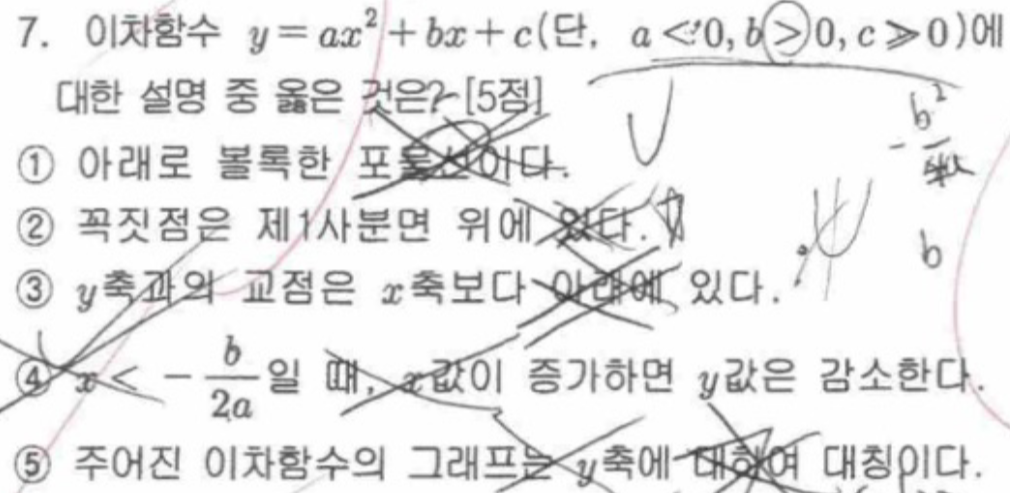 7. 이차함수 y=ax²+bx+c(단, a<0, b>0, c>0)에
대한 설명 중 옳은 것은? [5점]
① 아래로 볼록한 포물선이다.
② 꼭짓점은 제1사분면 위에 있다.
③ y축과의 교점은 x축보다 아래에 있다.
④ x< -b/2a일 때, x값이 증가하면 y값은 감소한다.
⑤ 주어진 이차함수의 그래프는 y축에 대하여 대칭이다.
b²
b